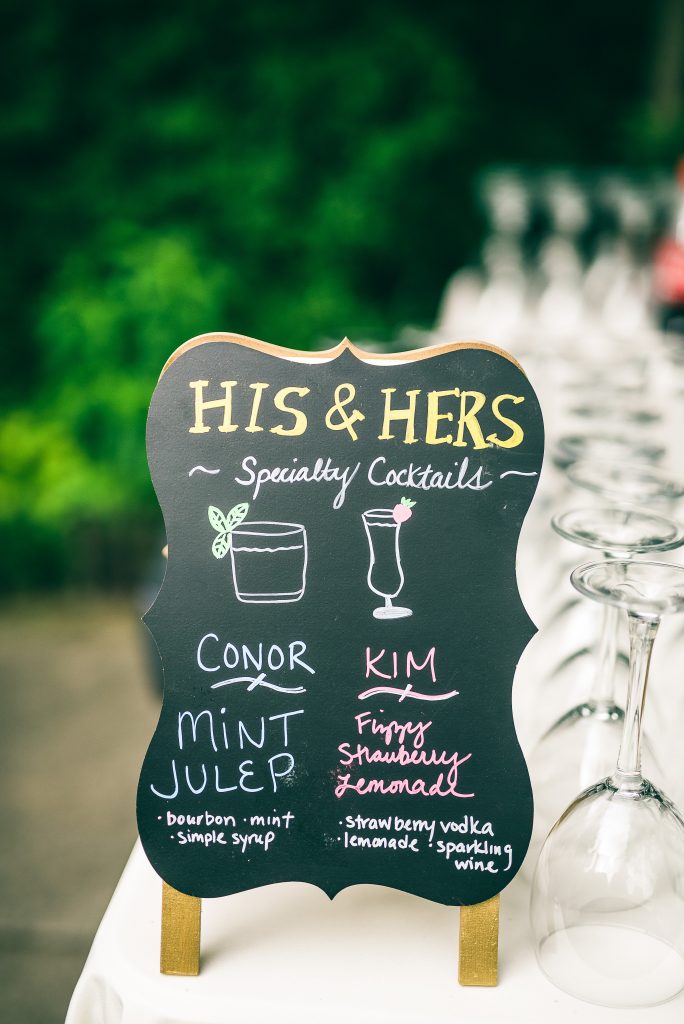 HIS & HERS
~ Specialty Cocktails ~
CONOR
MINT
JULEP
· bourbon · mint
· simple syrup
KIM
Fizzy
Strawberry
Lemonade
· strawberry vodka
· lemonade · sparkling
wine